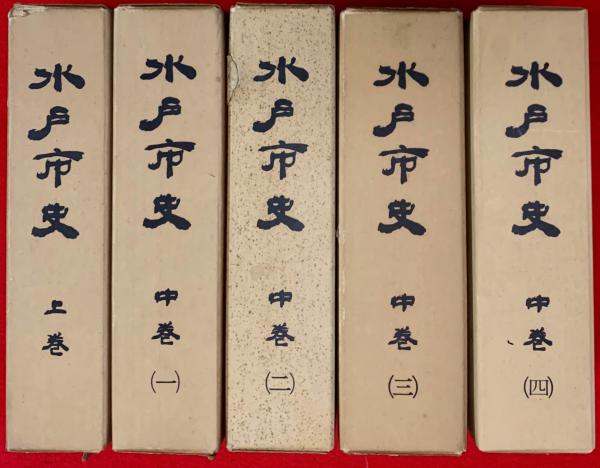 水戸市史
上巻
水戸市史
中巻
(一)
水戸市史
中巻
(二)
水戸市史
中巻
(三)
水戸市史
中巻
(四)